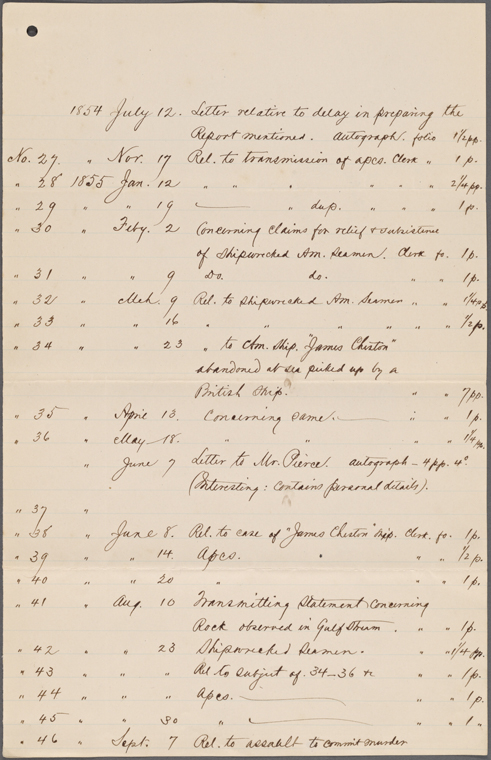 1854 July 12. Letter relative to delay in preparing the
Report mentioned. autograph. folio 1/2 pp.
No. 27. " Nov. 17 Rel. to transmission of apcs. Clerk " 1 p.
" 28 1855 Jan. 12 " " " " " " 2 1/4 pp.
" 29 " " 19 —— " dup. " " " 1 p.
" 30 " Feby. 2 Concerning claims for relief & subsistence
of Shipwrecked Am. Seamen. Clerk fo. 1 p.
" 31 " " 9 Do. do. " " 1 p.
" 32 " Mch. 9 Rel. to Shipwrecked Am. Seamen " " 1 1/4 pp.
" 33 " " 16 " " " " " " 1/2 p.
" 34 " " 23 " to Am. Ship. "James Cheston"
abandoned at sea picked up by a
British Ship. " " 7 pp.
" 35 " April 13. Concerning same. —— " " 1 p.
" 36 " May 18. " " " " 1 1/4 pp.
" June 7 Letter to Mr. Pierce. autograph – 4 pp. 4º.
(Interesting: contains personal details).
" 37 "
" 38 " June 8. Rel. to case of "James Cheston" Clerk. fo. 1 p.
" 39 " " 14. Apcs. " " " 1/2 p.
" 40 " " 20 " " " 1 p.
" 41 " Aug. 10 Transmitting Statement concerning
Rock observed in Gulf Stream. " " 1 p.
" 42 " " 23 Shipwrecked Seamen. " " 1 1/4 pp.
" 43 " " " Rel to subject of 34–36 &c " " 1 p.
" 44 " " " Apcs. —— " " 1 p.
" 45 " " 30 " —— " " 1 "
" 46 " Sept. 7 Rel. to assault to commit murder